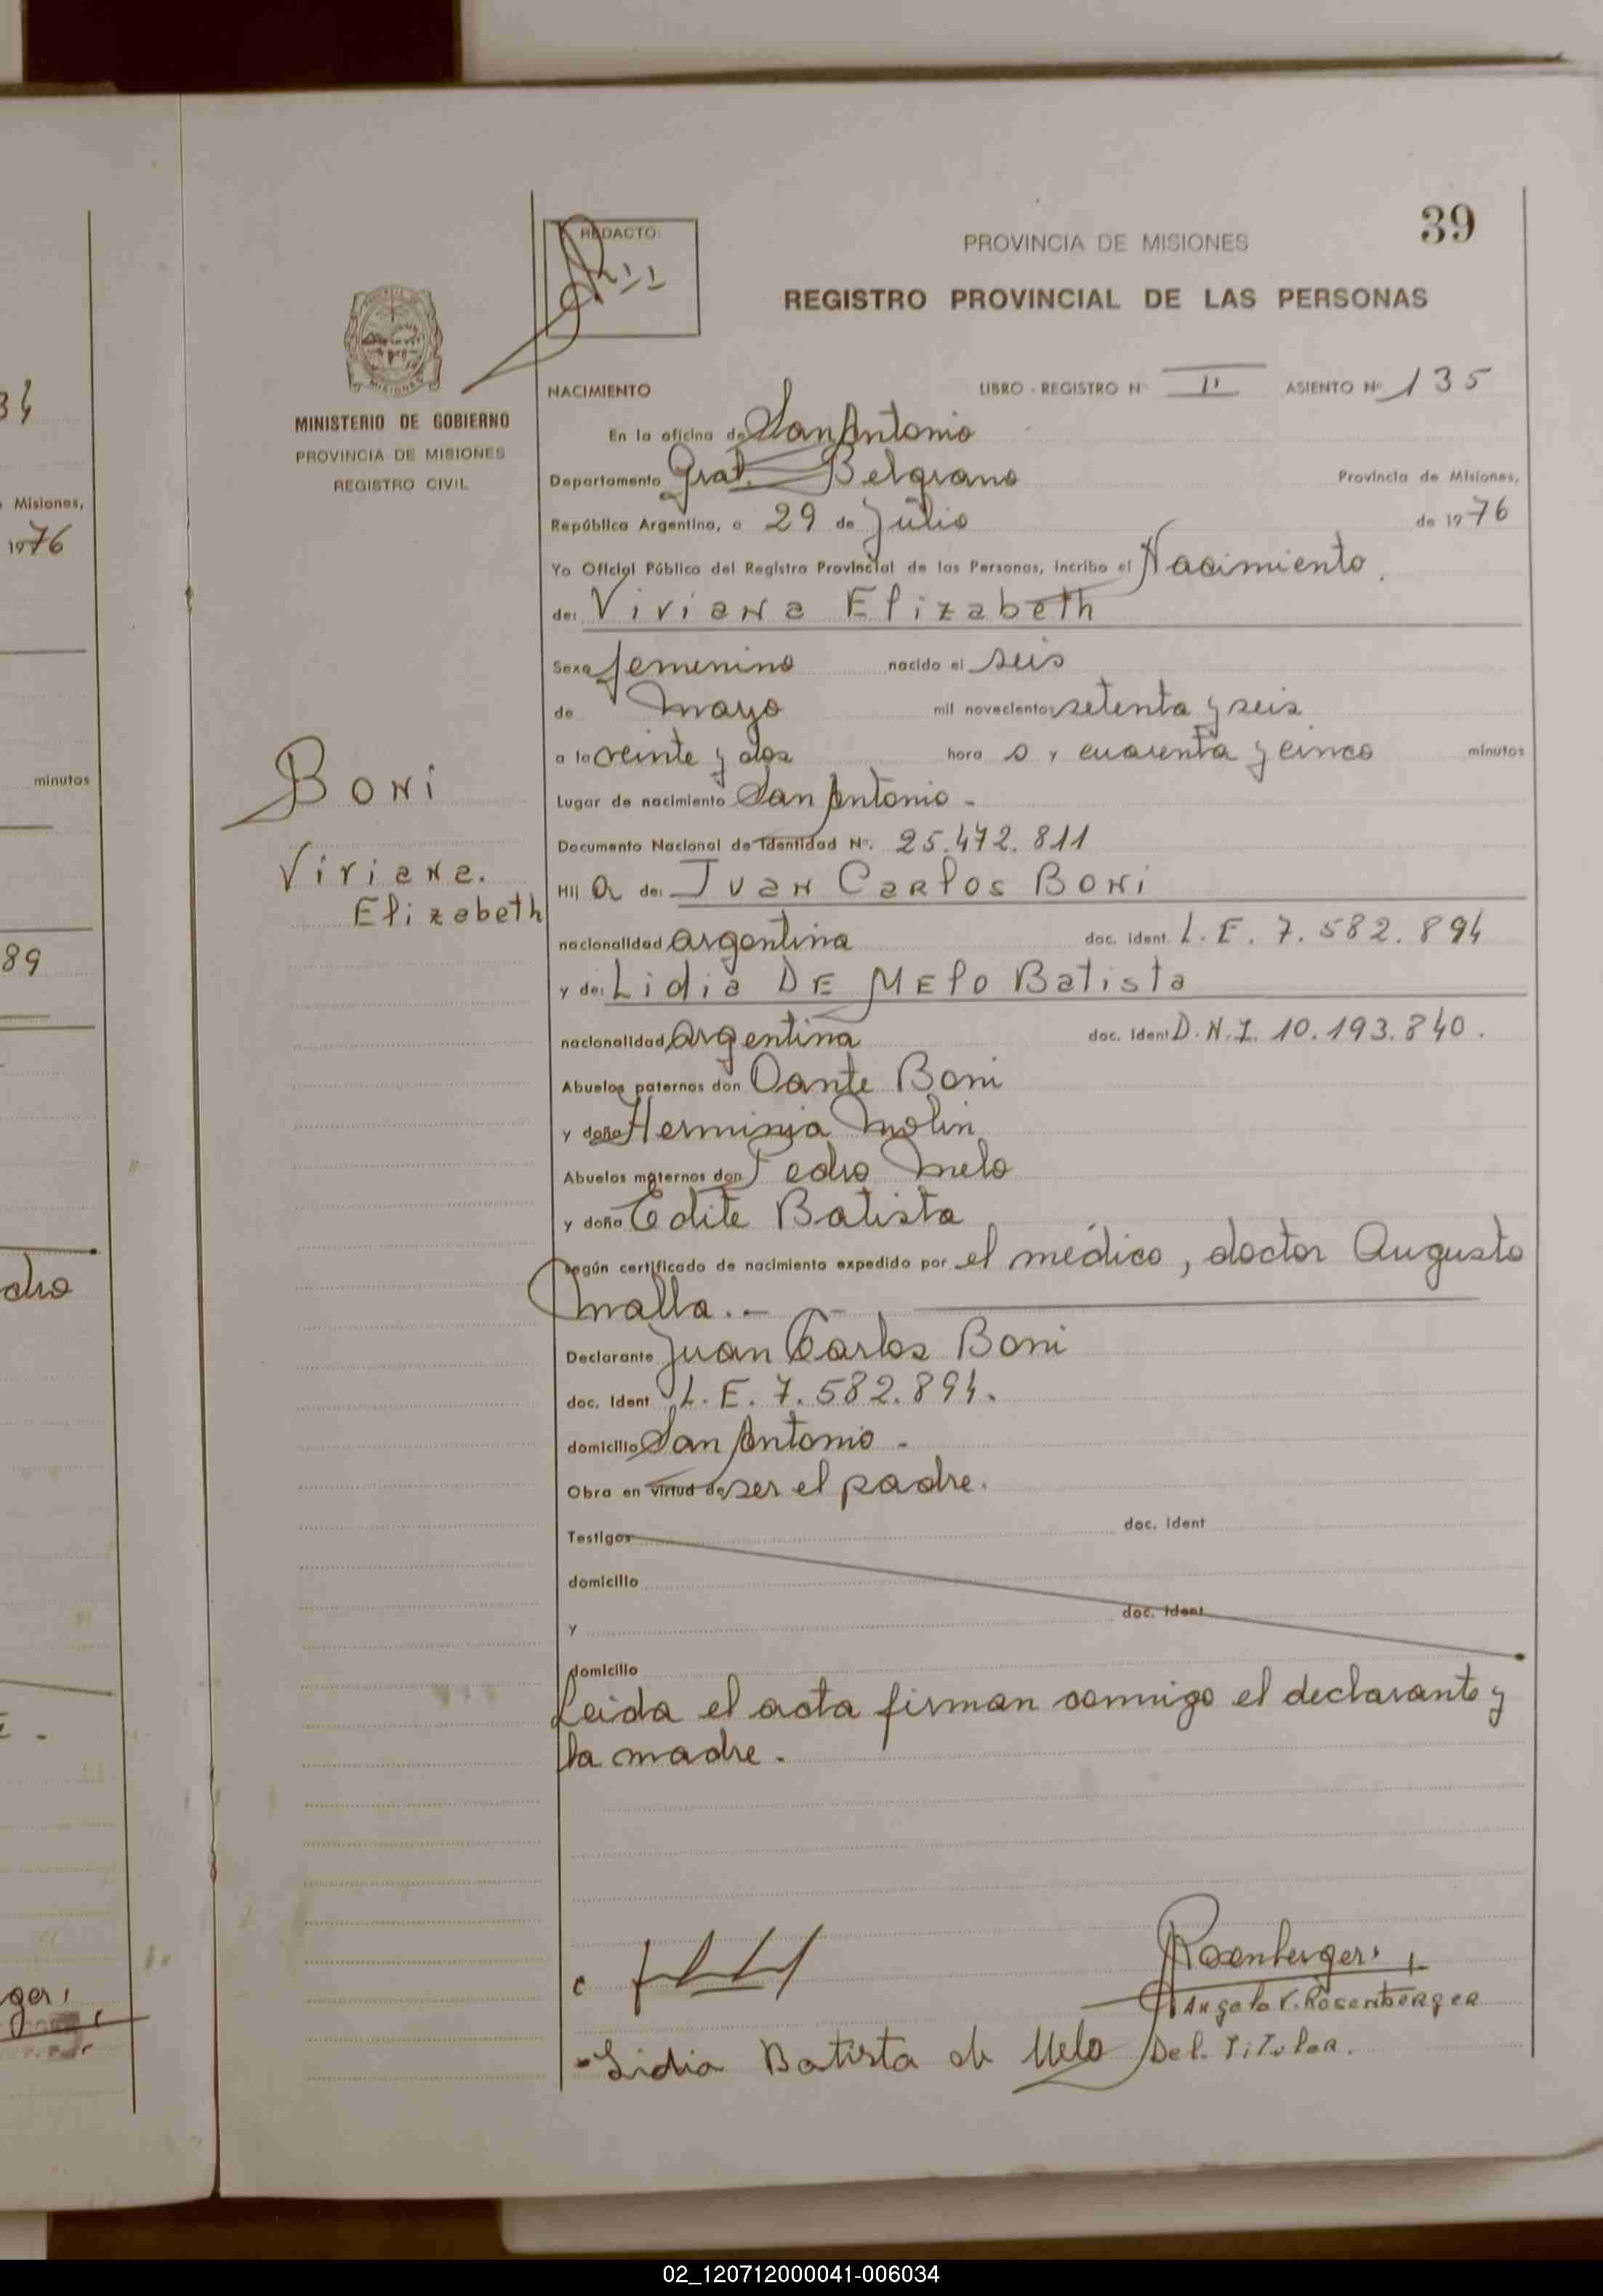 39
REDACTO:
PROVINCIA DE MISIONES
REGISTRO PROVINCIAL DE LAS PERSONAS
MINISTERIO DE GOBIERNO
PROVINCIA DE MISIONES
REGISTRO CIVIL
NACIMIENTO LIBRO - REGISTRO Nº II ASIENTO Nº 135
En la oficina de San Antonio
Departamento Gral. Belgrano Provincia de Misiones,
República Argentina, a 29 de Julio de 1976
Yo Oficial Público del Registro Provincial de las Personas, inscribo el Nacimiento
de: Viviana Elizabeth
Sexo femenino nacido el seis
de mayo mil novecientos setenta y seis
a la veinte y dos hora s y cuarenta y cinco minutos
Boni
Viviana.
Elizabeth
Lugar de nacimiento San Antonio -
Documento Nacional de Identidad Nº. 25.472.811
Hij a de: Juan Carlos Boni
nacionalidad argentina doc. ident. L.E. 7.582.894
y de: Lidia DE MElo Batista
nacionalidad argentina doc. ident D.N.I. 10.193.840.
Abuelos paternos don Dante Boni
y doña Herminia Molin
Abuelos maternos don Pedro Melo
y doña Edite Batista
según certificado de nacimiento expedido por el médico, doctor Augusto
Malla.-
Declarante Juan Carlos Boni
doc. ident L.E. 7.582.894.
domicilio San Antonio -
Obra en virtud de ser el padre.
Testigos doc. ident
domicilio
y doc. ident
domicilio
Leida el acta firman conmigo el declarante y
la madre.
Rosenberger
Angela V. Rosenberger
Lidia Batista de Melo
Del. Titular.
34
Misiones,
1976
minutos
89
dro
ger,
02_120712000041-006034